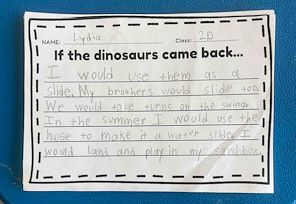 NAME: Lydia Class: 2D
If the dinosaurs came back...
I would use them as a
slide. My brothers would slide too.
We would take turns on the swing.
In the summer I would use the
hose to make it a water slide. I
would land and play in my sandbox.